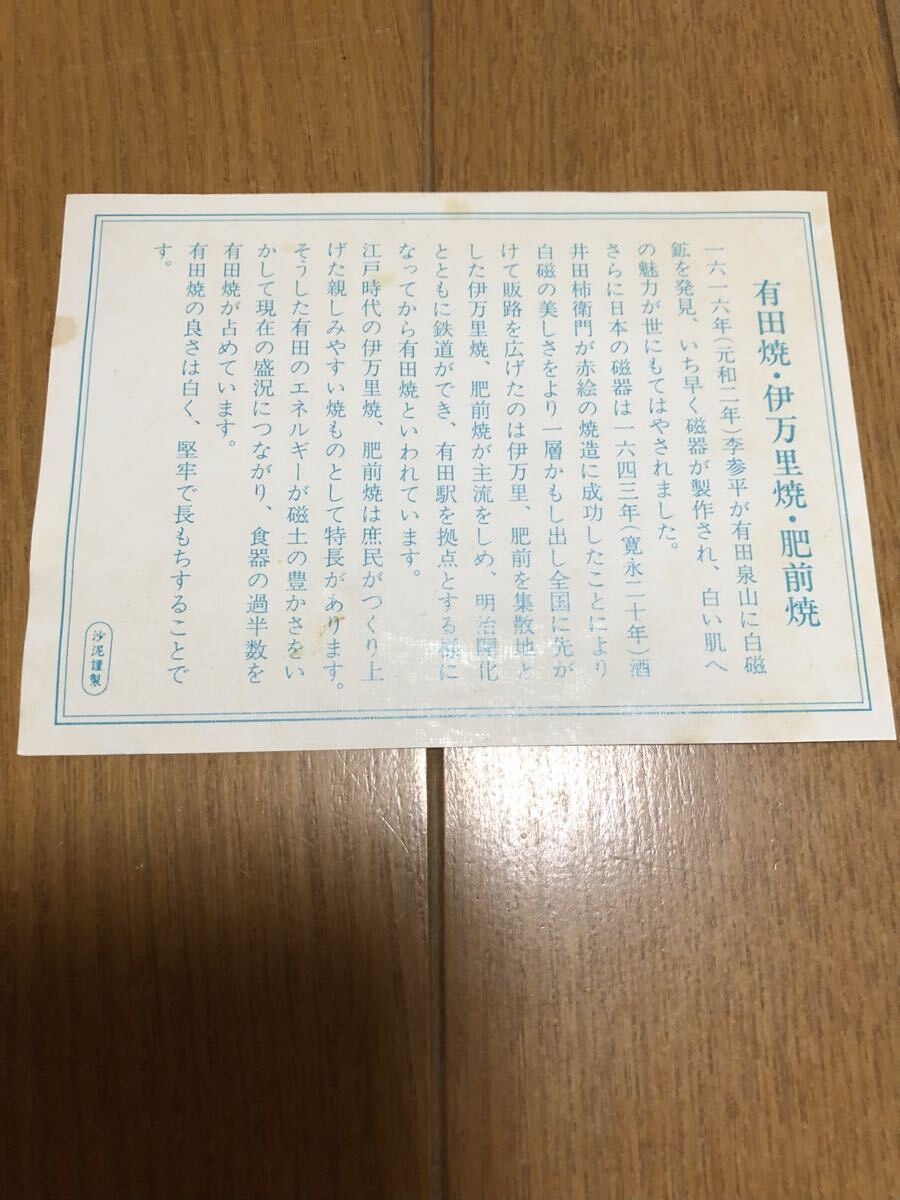 有田焼・伊万里焼・肥前焼
一六一六年(元和二年)李参平が有田泉山に白磁
鉱を発見、いち早く磁器が製作され、白い肌へ
の魅力が世にもてはやされました。
さらに日本の磁器は一六四三年(寛永二十年)酒
井田柿衛門が赤絵の焼造に成功したことにより
白磁の美しさをより一層かもし出し全国に先が
けて販路を広げたのは伊万里、肥前を集散地と
した伊万里焼、肥前焼が主流をしめ、明治開化
とともに鉄道ができ、有田駅を拠点とする様に
なってから有田焼といわれています。
江戸時代の伊万里焼、肥前焼は庶民がつくり上
げた親しみやすい焼ものとして特長があります。
そうした有田のエネルギーが磁土の豊かさをい
かして現在の盛況につながり、食器の過半数を
有田焼が占めています。
有田焼の良さは白く、堅牢で長もちすることで
す。
沙泥謹製